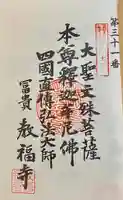 第三十一番
大聖文殊菩薩
本尊釋迦牟尼佛
四國直傳弘法大師
富貴 教福寺